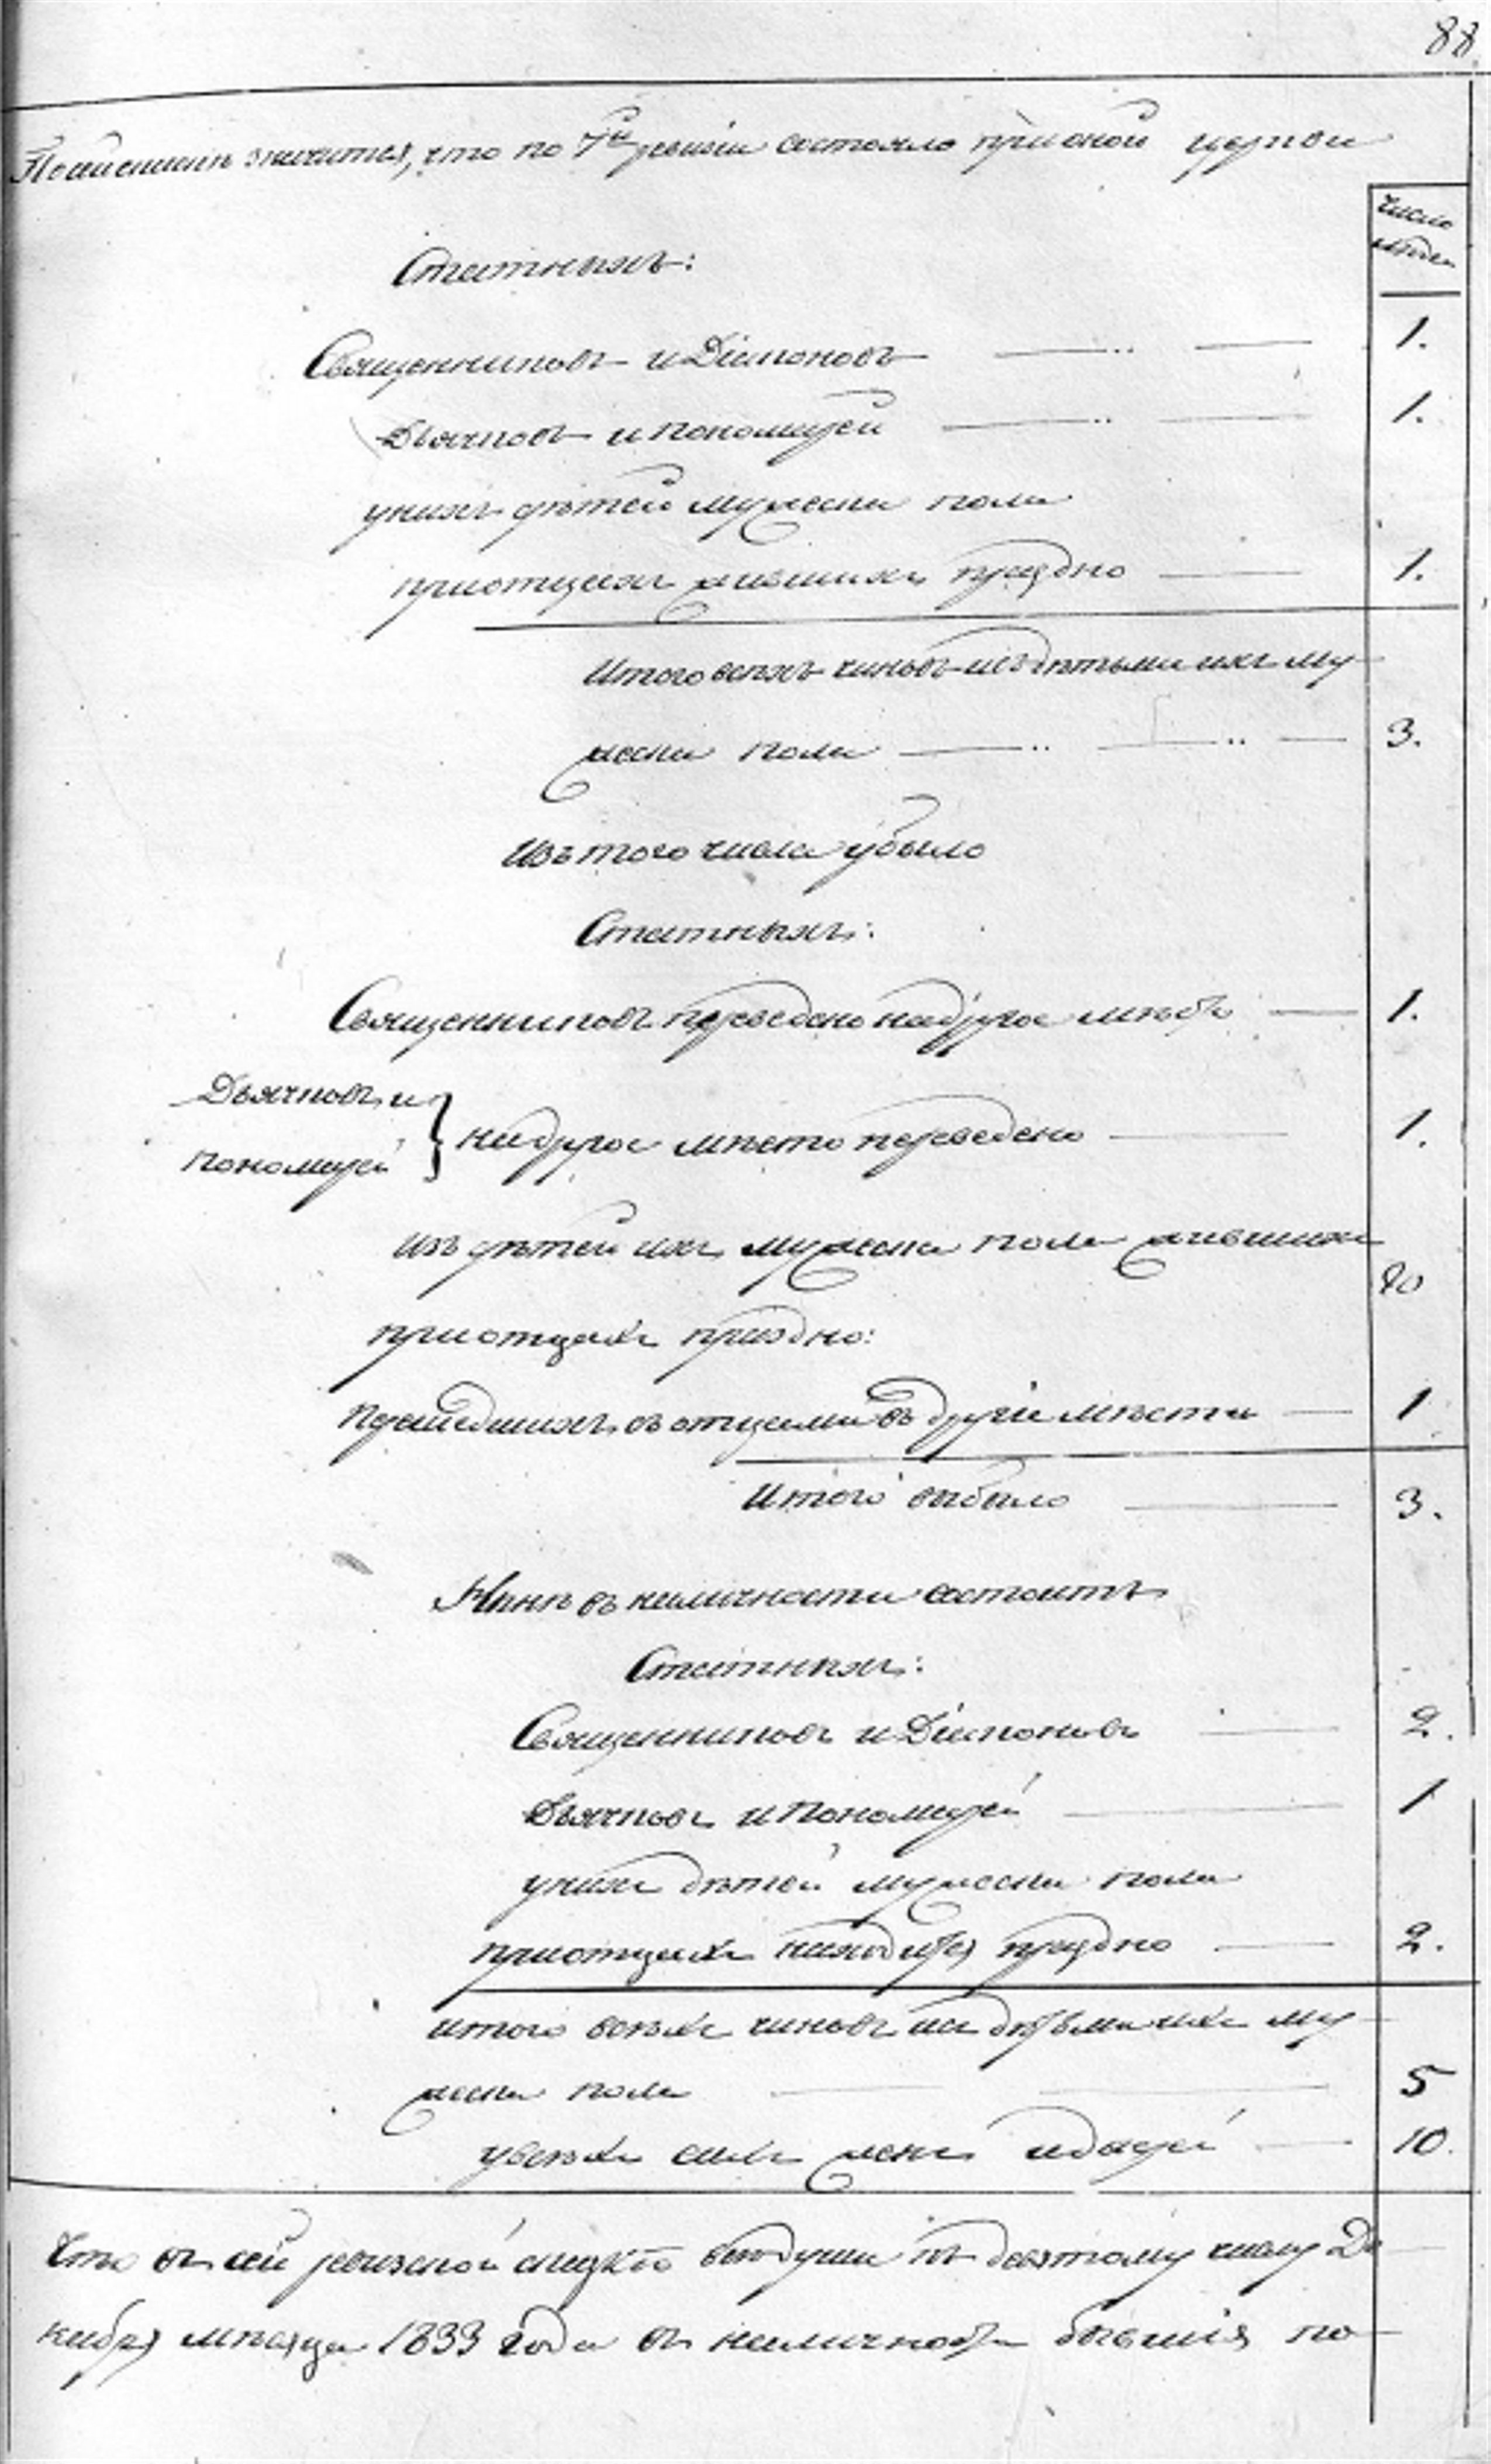 88.
По описанiи значится, что по 7й ревизiи состояло при оной церкви
Число людей
Статныхъ:
Священниковъ и Дiаконовъ 1.
Дьячковъ и пономарей 1.
у нихъ дѣтей мужеска пола
при отцахъ жившихъ праздно 1.
Итого всѣхъ чиновъ и съ дѣтьми ихъ му-
жеска пола 3.
Изъ того числа убыло
Статныхъ:
Священниковъ переведено на другое мѣсто 1.
Дьячковъ и
пономарей } на другое мѣсто переведено 1.
изъ дѣтей ихъ мужеска пола жившихъ
при отцахъ праздно:
Перешедшихъ съ отцами въ другiе мѣста 1
Итого выбыло 3.
Нынѣ въ наличности состоитъ
Статныхъ:
Священниковъ и Дiаконовъ 2.
Дьячковъ и Пономарей 1
у нихъ дѣтей мужеска пола
при отцахъ находится праздно 2.
итого всѣхъ чиновъ и съ дѣтьми ихъ му-
жеска пола 5
у всѣхъ сихъ женъ и дочерей 10.
Что въ сей ревизской сказкѣ всѣ души къ девятому числу Де-
кабря мѣсяца 1833 года въ наличности бывшiя по-